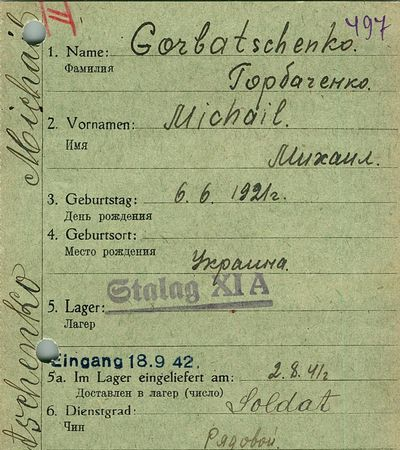 II
497
1. Name: Gorbatschenko.
Фамилия
Горбаченко.
2. Vornamen: Michail.
Имя
Михаил.
3. Geburtstag: 6. 6. 1921г.
День рождения
4. Geburtsort:
Место рождения
Украина.
Stalag XI A
5. Lager:
Лагер
Eingang 18.9 42.
5a. Im Lager eingeliefert am: 2.8.41г
Доставлен в лагер (число)
6. Dienstgrad: Soldat
Чин
Рядовой
tschenko Michail